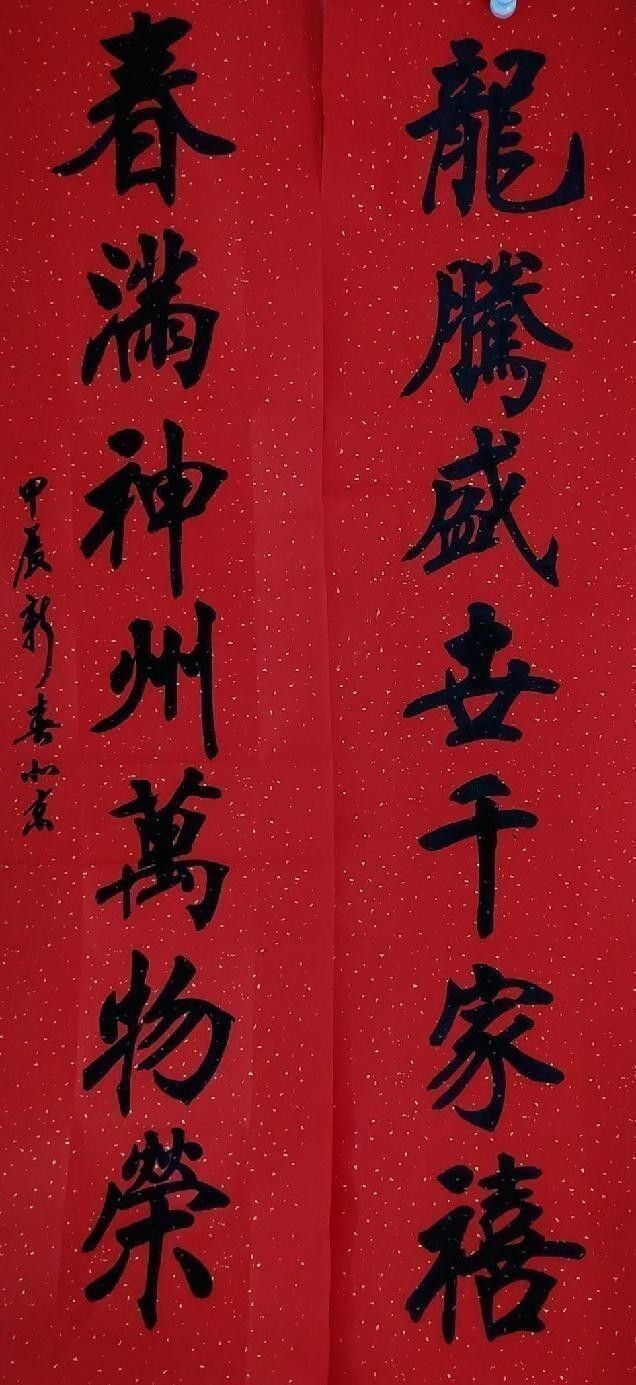 龍騰盛世千家禧
春滿神州萬物榮
甲辰新春小京